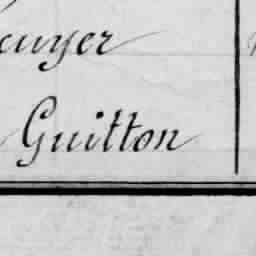 cuyer
Guitton